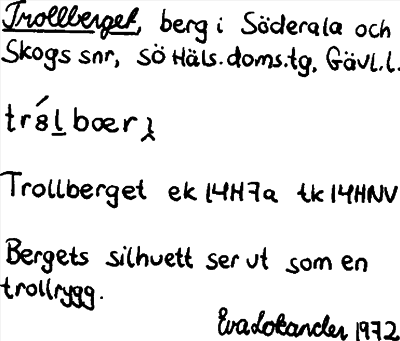 Trollberget, berg i Söderala och
Skogs snr, SÖ Häls. doms.tg, Gävl.l.
Trollberget ek 14H7a tk 14HNV
Bergets silhuett ser ut som en
trollrygg.
Eva Lokander 1972